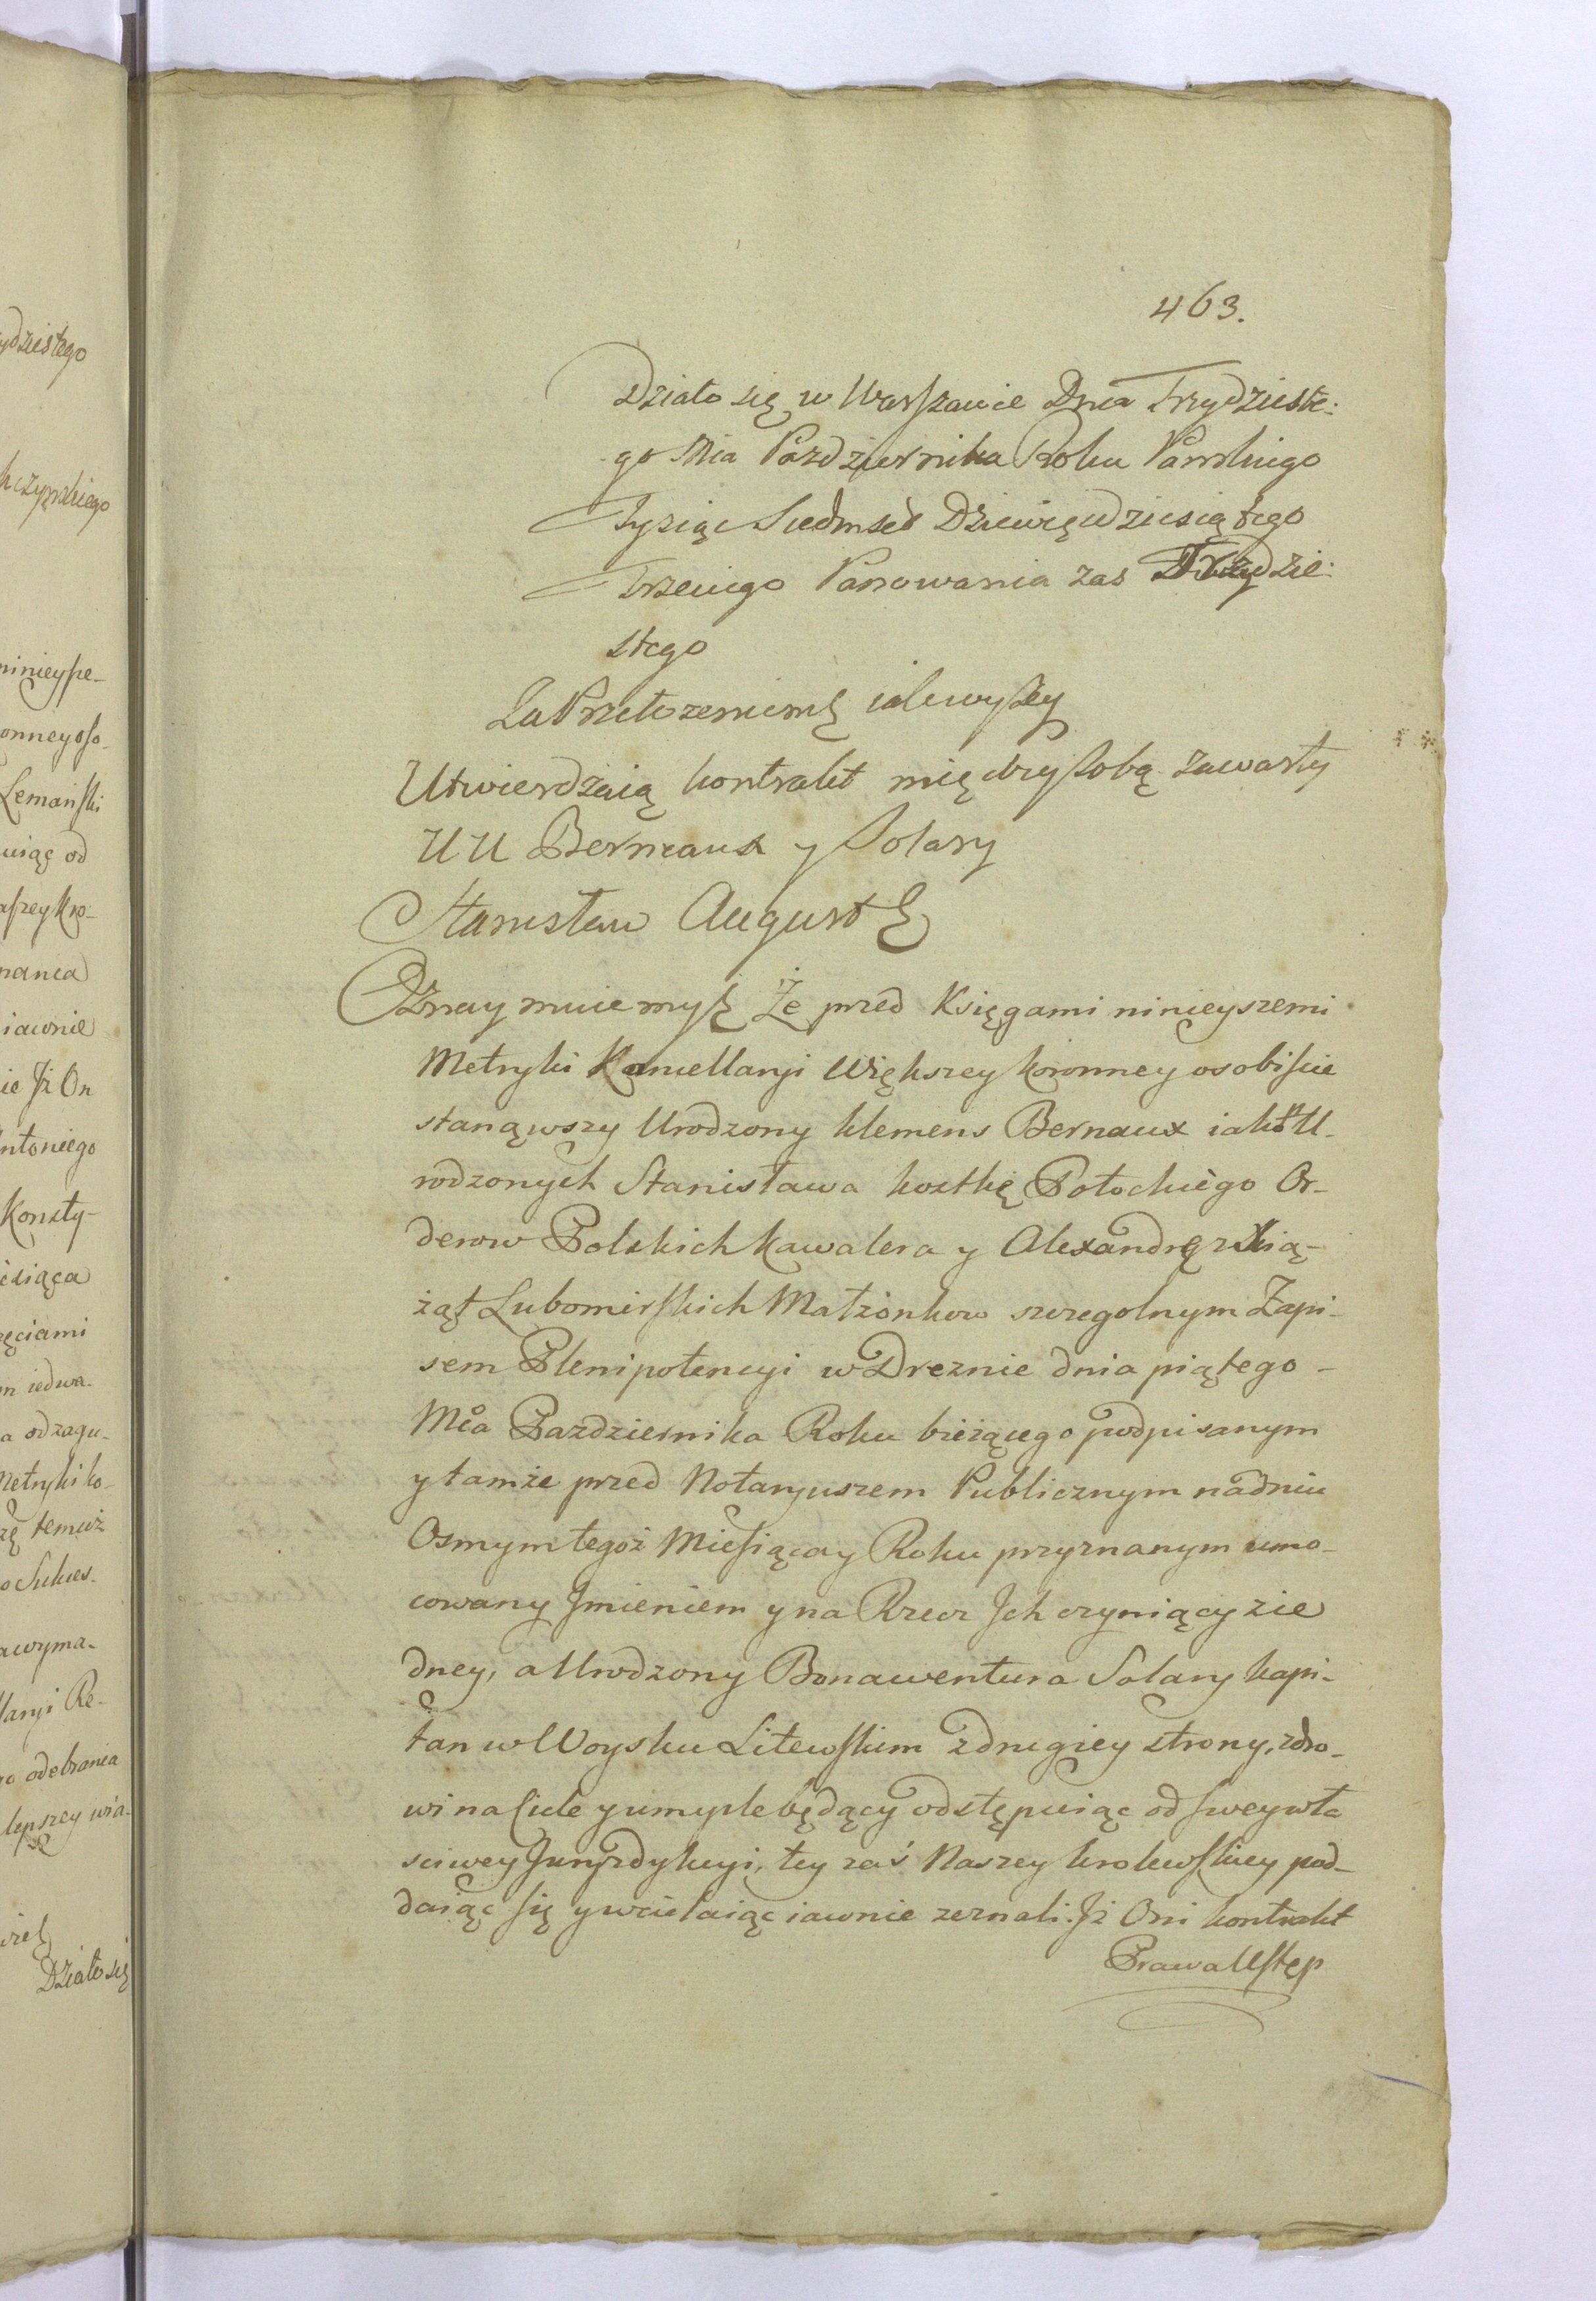 463.
Działo się w Warszawie Dnia Trzydzieste:
go Mca Pazdziernika Roku Panskiego
Tysiąc Siedmset Dziewięcdziesiątego
Trzeciego Panowania zas Trzydzie:
stego
Za Przełozeniem iakwyżey
Utwierdzaią kontrakt między sobą zawarty
UU Berneaux y Solary
Stanisław August
Oznaymuiemy Że przed Księgami ninieyszemi
Metryki Kancellaryi Większey koronney osobiscie
stanąwszy Urodzony klemens Bernaux iako U-
rodzonych Stanisława kostkę Potockiego Or-
derow Polskich kawalera y Alexandrę z Xią-
żąt Lubomirskich Małżonkow szczegolnym Zapi-
sem Plenipotencyi w Dreznie dnia piątego -
Mca Pazdziernika Roku bieżącego podpisanym
y tamże przed Notaryuszem Publicznym nadniu
Osmym tegoż Miesiąca y Roku przyznanym umo-
cowany Jmieniem y na Rzecz Jch czyniący zie
dney, a Urodzony Bonawentura Solary kapi-
tan w Woysku Litewskim z drugiey strony, zdro-
wi na ciele y umysle będący odstępuiąc od swey wła
sciwey Juryzdykcyi, tey zaś Naszey krolewskiey pod-
daiąc się y wcielaiąc iawnie zeznali. Jż Oni kontrakt
Prawa Ustęp
ydziestego
kczyńskiego
ninieysze-
onney oso-
Lemański
uiąc od
aszey kro-
iawnie
ie Jż On
Antoniego
Konsty-
esiąca
ęciami
m iedwa-
a od zagu-
Metryki ko-
zę temuż
o Sukces-
a wyma-
llaryi Re-
go odebrania
lepszey wia-
Działo się